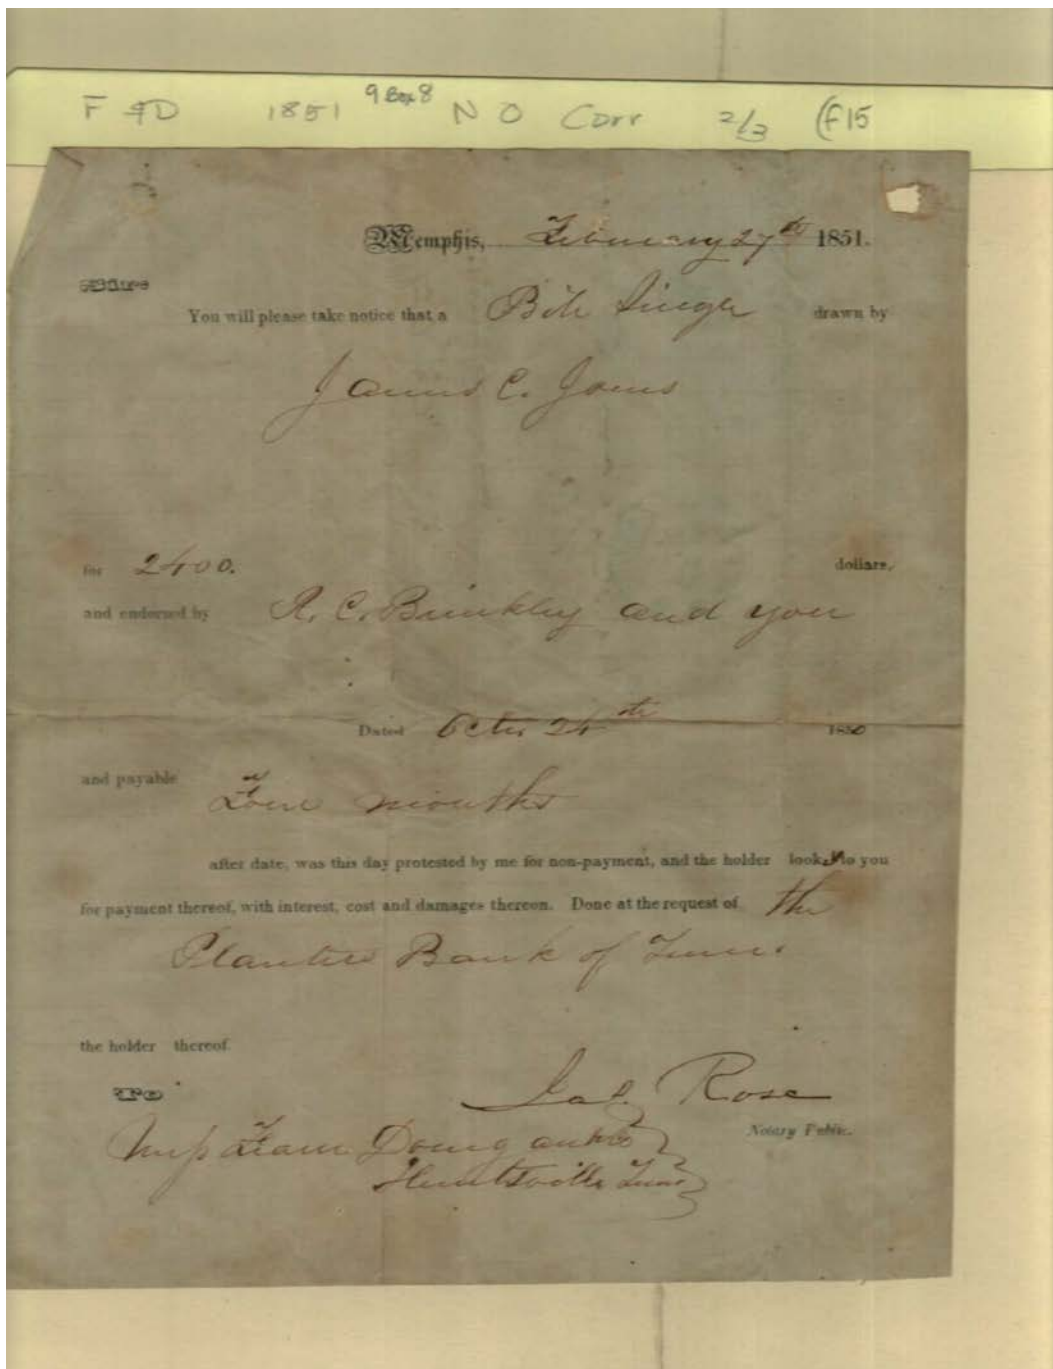 F & D 1851 9 Box 8 N O Corr 2/3 (F15
Memphis, February 27th 1851.
You will please take notice that a Bill Single drawn by
James C. Jones
for 2400. dollars,
and endorsed by R. C. Brinkley and you
Dated Octr 24th 1850
and payable
Four months
after date, was this day protested by me for non-payment, and the holder looks to you
for payment thereof, with interest, cost and damages thereon. Done at the request of the
Planters Bank of Tenn.
the holder thereof
To
Rose
Notary Public.
Huntsville Tenn